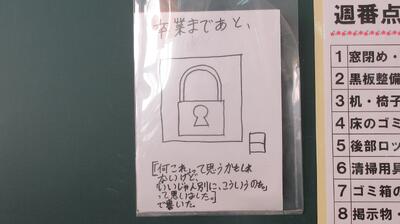 卒業まであと、
日
「「何これ」って思うかもしれ
ないけど、
いいじゃん別に、こういうのも。」
って思いました。
で書いた。
週番点
1 窓閉め・
2 黒板整備
3 机・椅子
4 床のゴミ
5 後部ロッ
6 清掃用具
7 ゴミ箱の
8 掲示物・